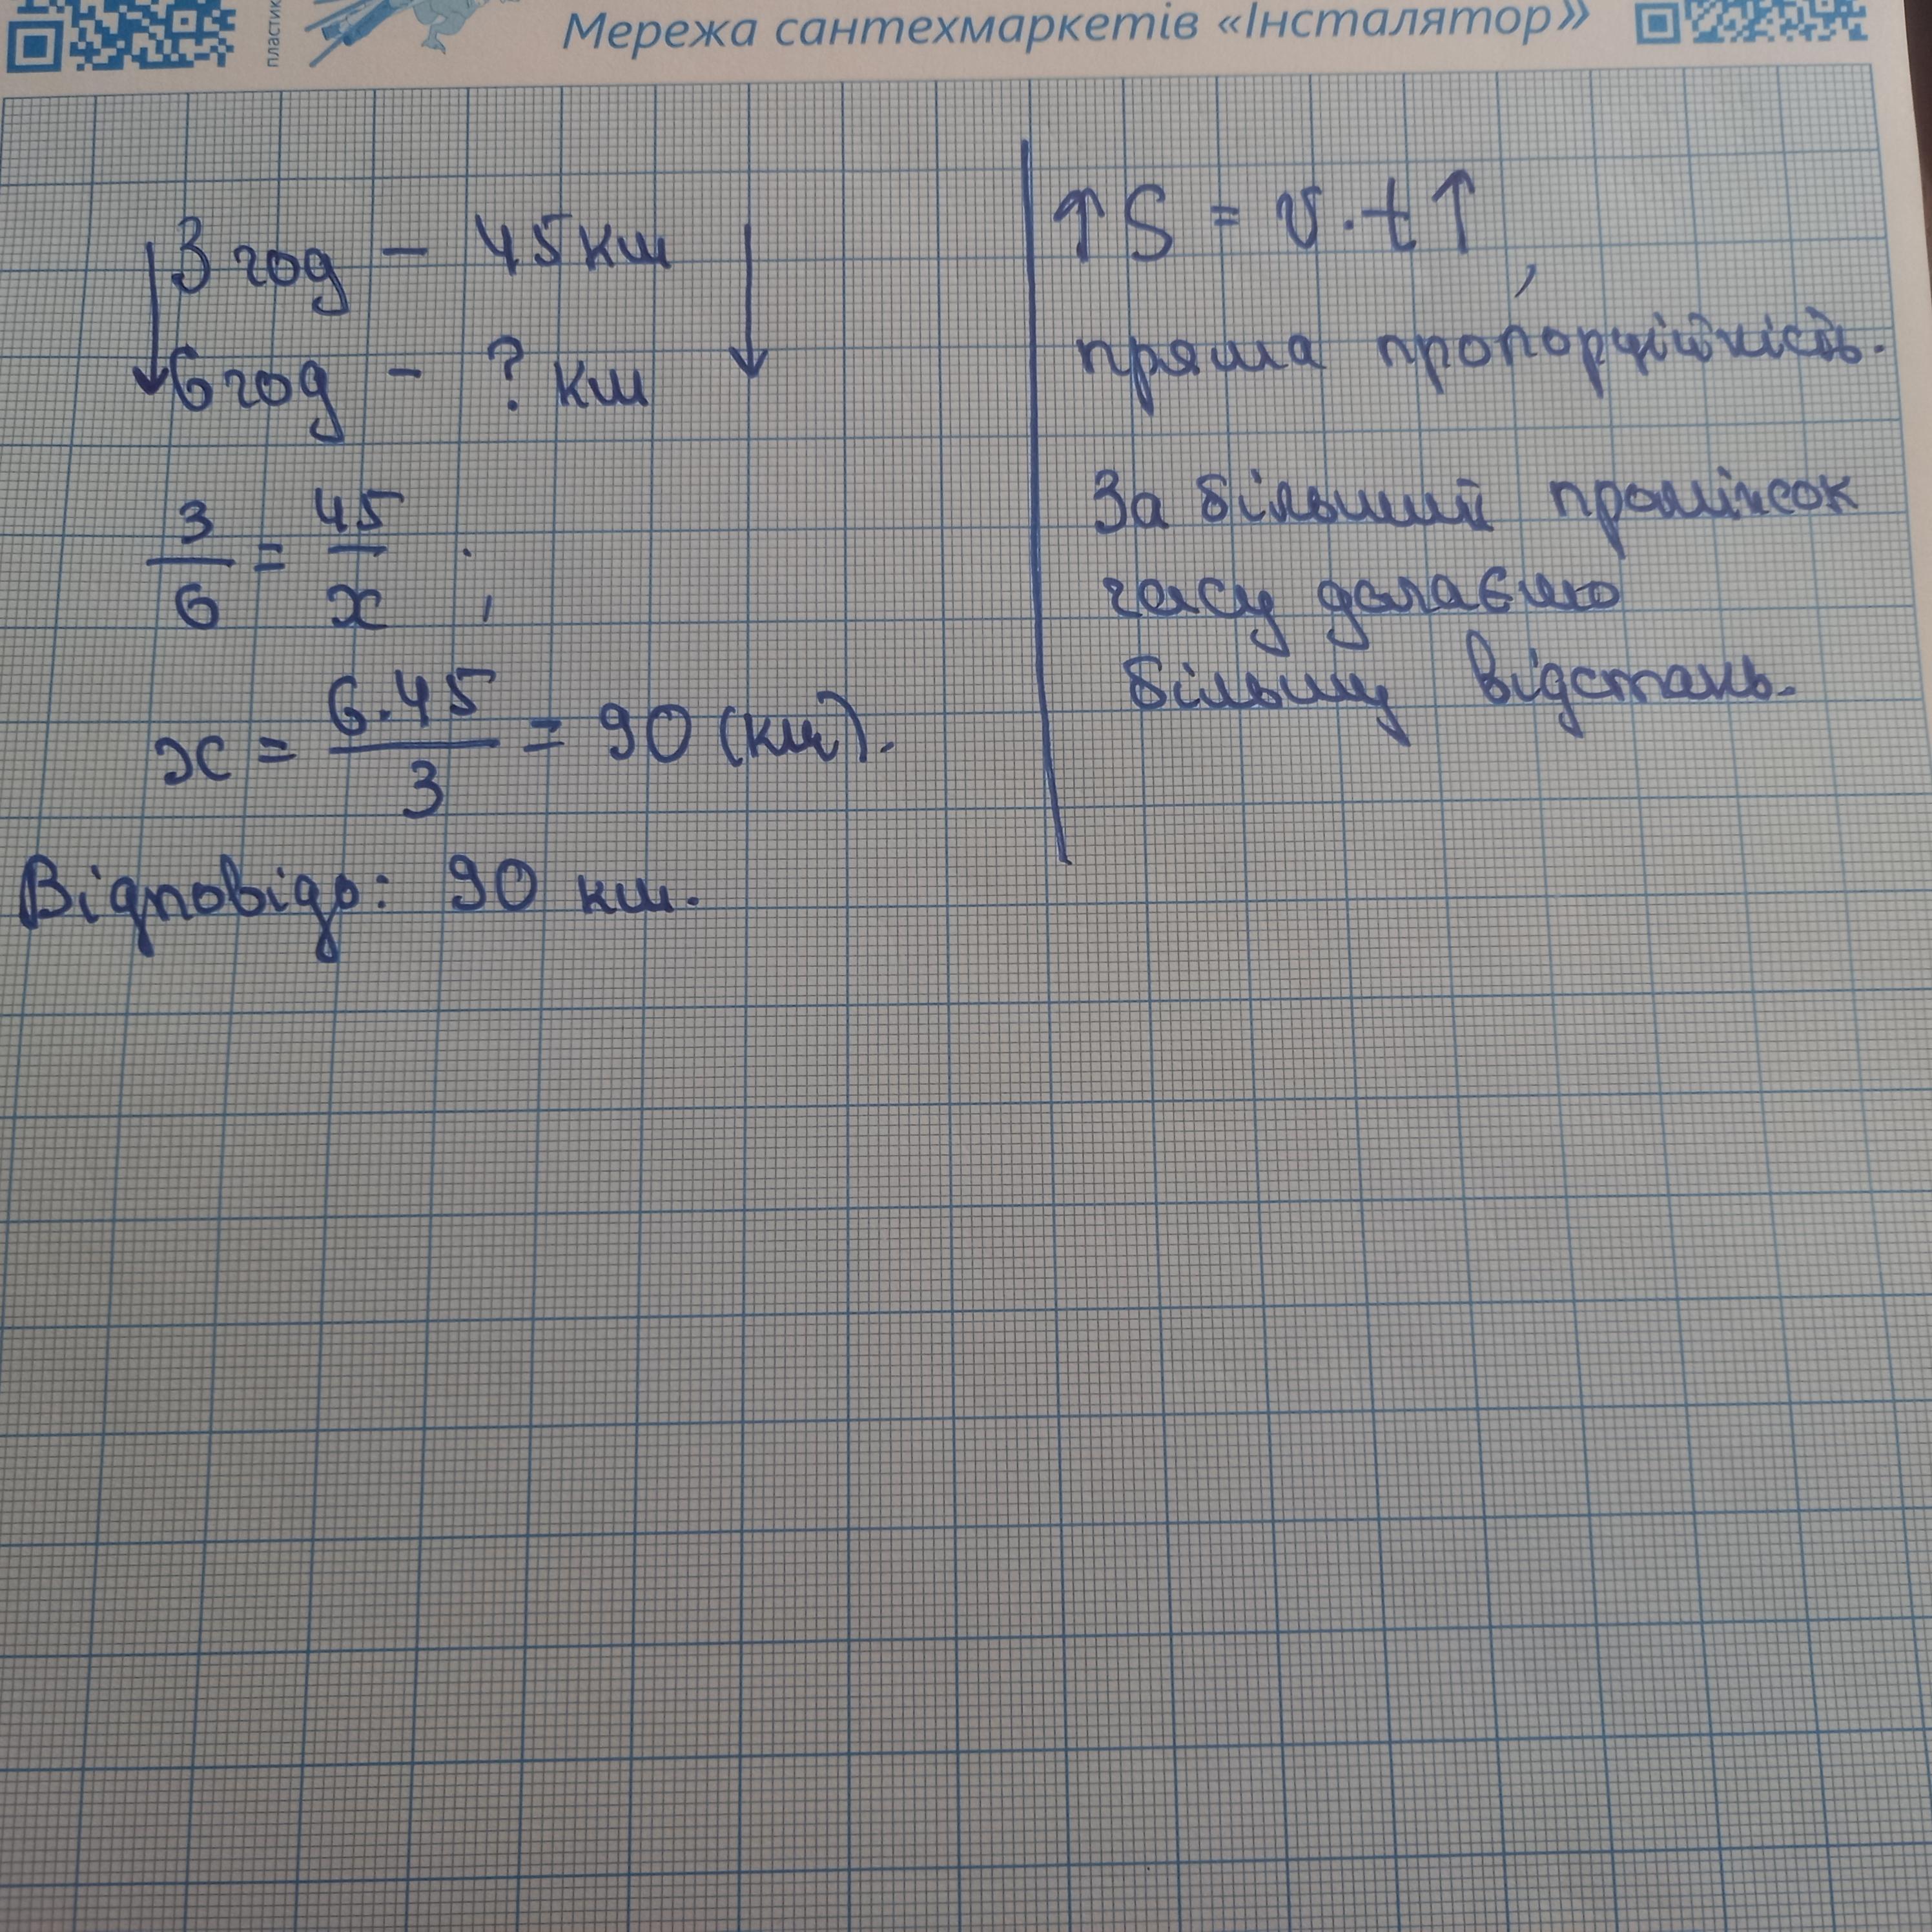 пластик
Мережа сантехмаркетів «Інсталятор»
3 год – 45 км
6 год – ? км
3/6 = 45/x ;
x = 6·45/3 = 90 (км).
Відповідь: 90 км.
↑S = v·t↑,
пряма пропорційність.
За більший проміжок
часу долаємо
більшу відстань.